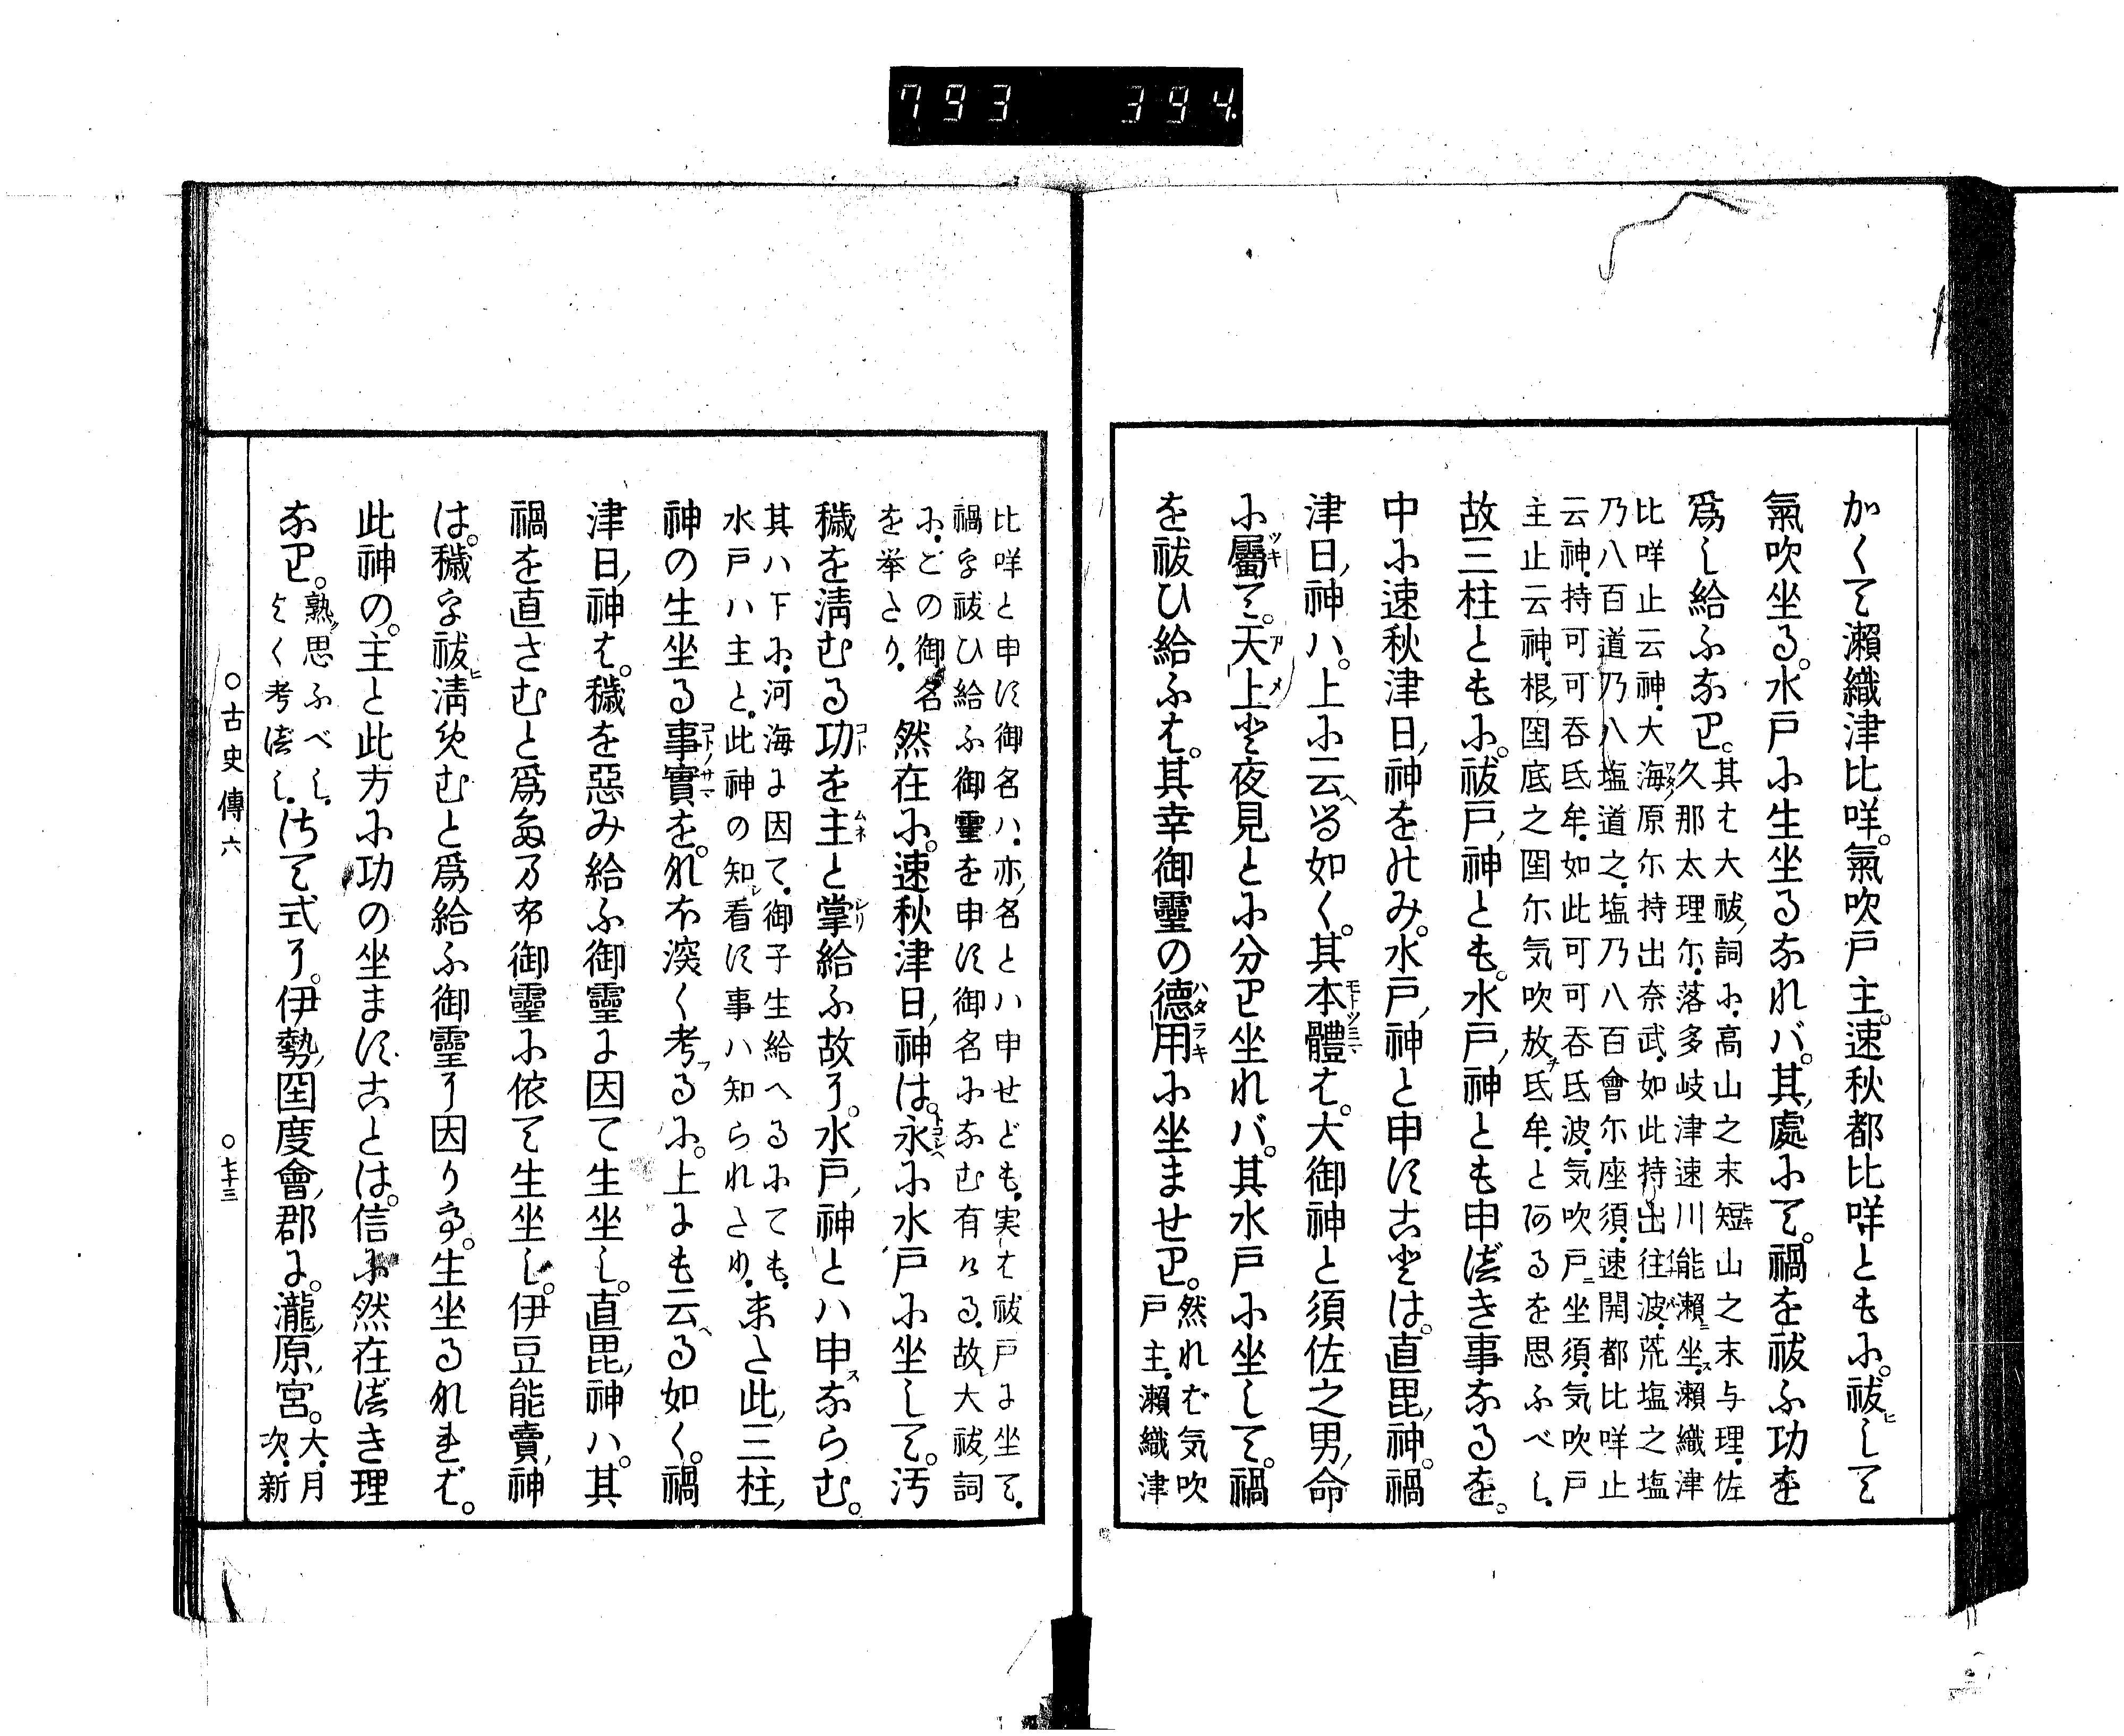 793 394
かくて瀬織津比咩。氣吹戸主。速秋都比咩ともに。祓ヒして
氣吹坐る。水戸に生坐るなれバ。其處にて。禍を祓ふ功を
爲し給ふなり。其は大祓ノ詞に。高山之末短山之末与理。佐
久那太理尓。落多岐津速川能瀬ニ坐ス。瀬織津
比咩止云神。大海原尓持出奈武。如此持出往波。荒塩之塩
乃八百道乃八塩道之。塩乃八百會尓座須。速開都比咩止
云神。持可可呑氐牟。如此可可呑氐波。気吹戸ニ坐須。気吹戸
主止云神。根ノ国底之国尓気吹放チ氐牟。とあるを思ふべし。
故三柱ともに。祓戸ノ神とも。水戸ノ神とも申すべき事なるを。
中に速秋津日ノ神をのみ。水戸ノ神と申すことは。直毘ノ神。禍
津日ノ神ハ。上に云ヘる如く。其本體は。大御神と須佐之男ノ命
に屬て。天上と夜見とに分り坐れバ。其水戸に坐して。禍
を祓ひ給ふは。其幸御靈の德用に坐ませり。然れば気吹
戸主。瀬織津
比咩と申す御名ハ。亦ノ名とハ申せども。実は祓戸に坐て。
禍を祓ひ給ふ御靈を申す御名になむ有ける。故レ大祓ノ詞
に。どの御名
を挙たり。然在に。速秋津日ノ神は。永に水戸に坐して。汚
穢を淸むる功を主と掌給ふ故に。水戸ノ神とハ申スならむ。
其ハ下に。河海に因て。御子生給へるにても。
水戸ハ主と。此神の知レ看す事ハ知られたり。また此ノ三柱ノ
神の生坐る事實を。なほ深く考フるに。上にも云ヘる如く。禍
津日ノ神は。穢を惡み給ふ御靈に因て生坐し。直毘ノ神ハ。其
禍を直さむと爲たまふ御靈に依て生坐し。伊豆能賣ノ神
は。穢を祓ヒ淸めむと爲給ふ御靈に因りて。生坐るなれば。
此神の。主と此方に功の坐ますことは。信に然在べき理
なり。熟ク思ふべし。
よく考べし。さて式に。伊勢ノ国度會ノ郡に。瀧ノ原ノ宮。大。月
次。新
○古史傳六 ○七十三